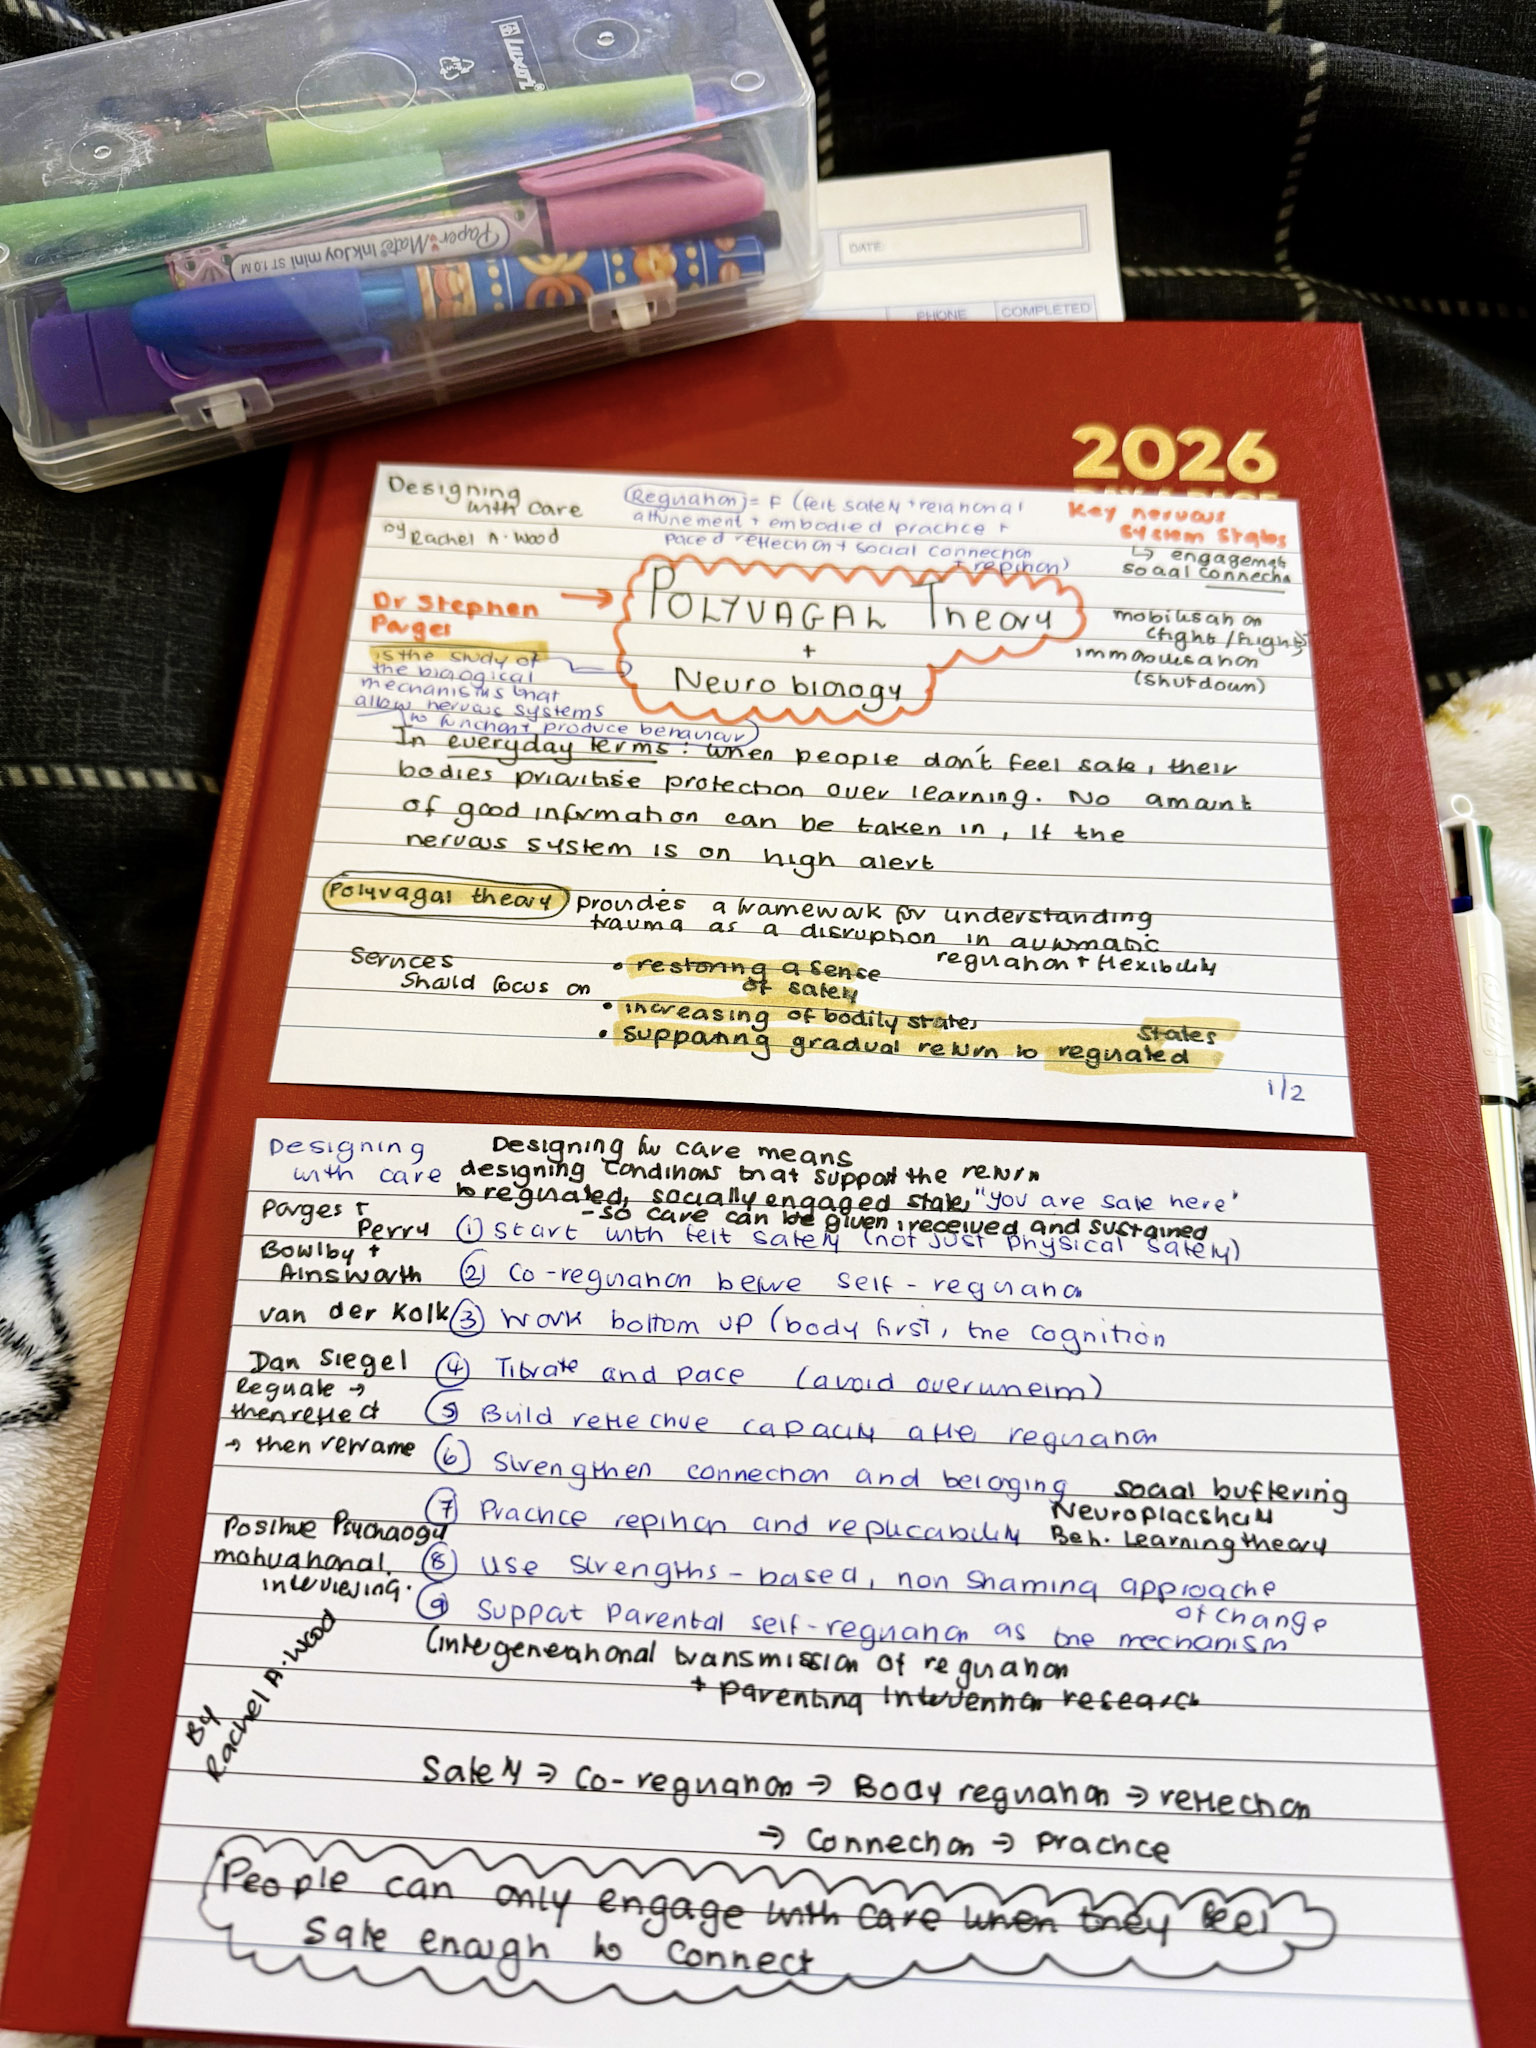 Luxor
PaperMate InkJoy mini ST 1.0M
DATE
PHONE
COMPLETED
2026
Designing
with care
by Rachel A. Wood
Regulation = F (felt safety + relational
attunement + embodied practice +
paced reflection + social connection
+ repition)
Key nervous
system states
↳ engagement
social connectn
mobilisation
(fight/flight)
immobilisation
(shutdown)
Dr Stephen
Porges →
POLYVAGAL Theory
+
Neurobiology
is the study of
the biological
mechanisms that
allow nervous systems
to function + produce behaviour
In everyday terms: when people don't feel safe, their
bodies prioritise protection over learning. No amount
of good information can be taken in, if the
nervous system is on high alert
Polyvagal theory provides a framework for understanding
trauma as a disruption in automatic
regulation + flexibility
Services
should focus on
• restoring a sense
of safety
• increasing of bodily states
• supporting gradual return to regulated
states
1/2
Designing
with care
Designing for care means
designing conditions that support the return
to regulated, socially engaged state, "you are safe here"
- so care can be given, received and sustained
Porges +
Perry
① Start with felt safety (not just physical safety)
Bowlby +
Ainsworth
② Co-regulation before self-regulation
van der Kolk
③ Work bottom up (body first, the cognition
Dan Siegel
④ Titrate and pace (avoid overwhelm)
Regulate →
then reflect
→ then reframe
⑤ Build reflective capacity after regulation
⑥ Strengthen connection and beloging
social buffering
⑦ Practice repition and replicability
Neuroplasticity
Beh. Learning theory
Positive Psychology
motivational
interviewing.
⑧ use strengths-based, non shaming approache
⑨ support parental self-regulation as the mechanism
of change
(intergenerational transmission of regulation
+ parenting intervention research
By
Rachel A. Wood
Safety → Co-regulation → Body regulation → reflection
→ Connection → practice
People can only engage with care when they feel
safe enough to connect